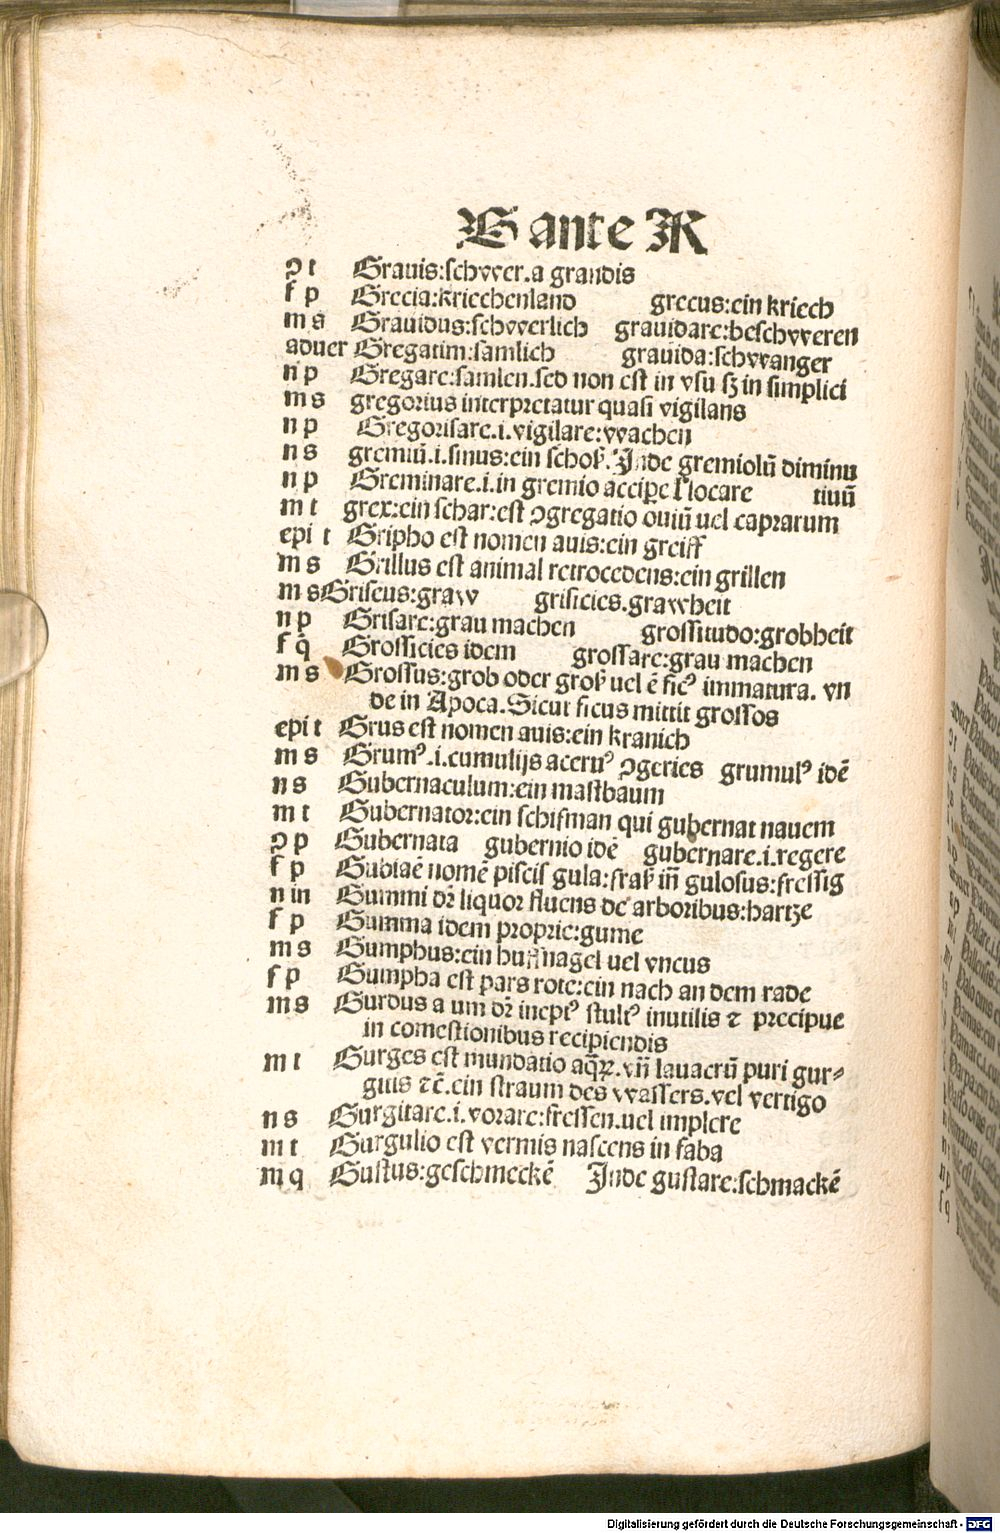 G ante R
ꝯ t Grauis:schvver.a grandis
f p Grecia:kriechenland grecus:ein kriech
m s Grauidus:schvverlich grauidare:beschvveren
aduer Gregatim:samlich grauida:schvvanger
n p Gregare:samlen.sed non est in vsu sꝫ in simplici
m s gregorius interpretatur quasi vigilans
n p Gregorisare.i.vigilare:vvachen
n s gremiū.i.sinus:ein schoß.Inde gremiolū diminu
n p Greminare.i.in gremio accipe l' locare tiuū
m t grex:ein schar:est ꝯgregatio ouiū uel caprarum
epi t Gripho est nomen auis:ein greiff
m s Grillus est animal retrocedens:ein grillen
m s Griseus:graw grisicies.grawheit
n p Grisare:grau machen grossitudo:grobheit
f q̄ Grossicies idem grossare:grau machen
m s Grossus:grob oder groß uel ē ficꝰ immatura. vn
de in Apoca.Sicut ficus mittit grossos
epi t Grus est nomen auis:ein kranich
m s Grumꝰ.i.cumulijs aceruꝰ ꝯgeries grumulꝰ idē
n s Gubernaculum:ein mastbaum
m t Gubernator:ein schifman qui gubernat nauem
ꝯ p Gubernata gubernio idē gubernare.i.regere
f p Gubiaē nomē piscis gula:fraß iñ gulosus:fressig
n in Gummi dr̄ liquor fluens de arboribus:hartze
f p Gumma idem proprie:gume
m s Gumphus:ein huffnagel uel vncus
f p Gumpha est pars rote:ein nach an dem rade
m s Gurdus a um dr̄ ineptꝰ stultꝰ inutilis ⁊ precipue
in comestionibus recipiendis
m t Gurges est inundatio aq̄ꝝ.vn̄ lauacrū puri gur⸗
guis ⁊c̄.ein straum des vvassers.vel vertigo
n s Gurgitare.i.vorare:fressen.uel implere
m t Gurgulio est vermis nascens in faba
m q Gustus:geschmeckē Inde gustare:schmackē
Digitalisierung gefördert durch die Deutsche Forschungsgemeinschaft - DFG